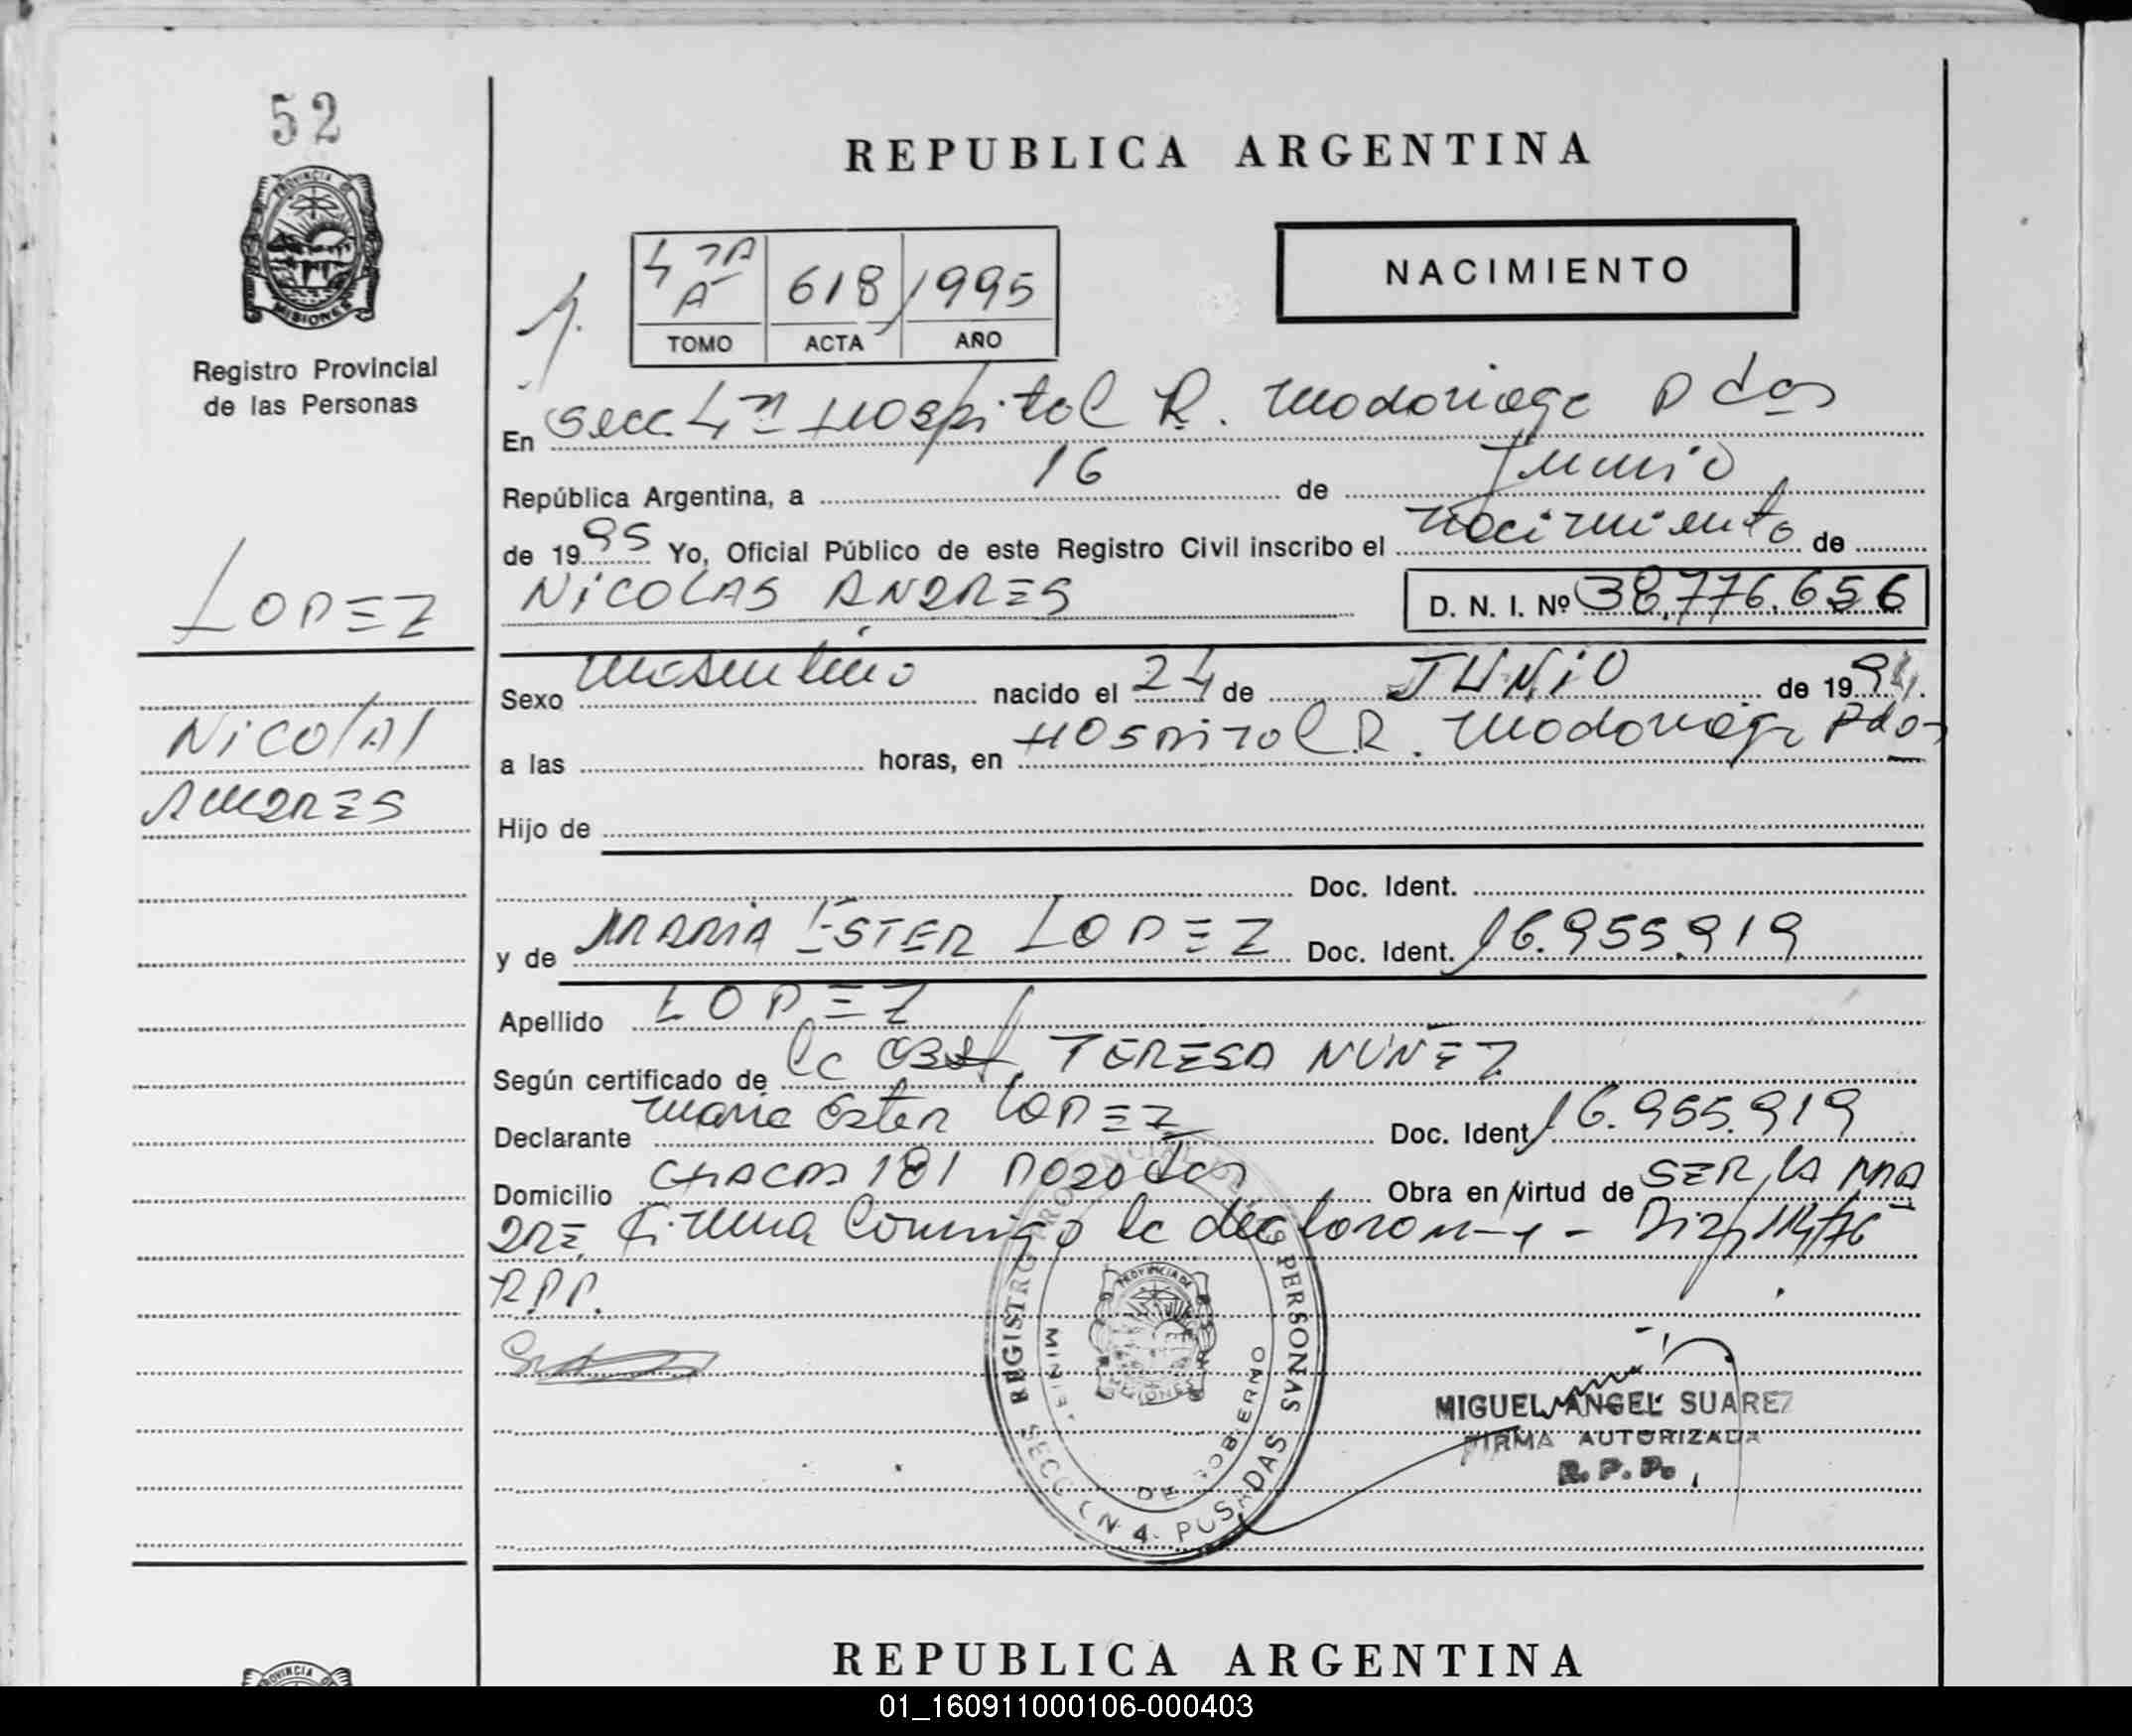 52
REPUBLICA ARGENTINA
PROVINCIA DE
MISIONES
Registro Provincial
de las Personas
4 TA A
618
1995
TOMO
ACTA
AÑO
NACIMIENTO
En Secc. 4ta Hospital R. Madariaga Pdas
República Argentina, a 16 de Junio
de 1995 Yo, Oficial Público de este Registro Civil inscribo el nacimiento de
NICOLAS ANDRES D. N. I. Nº 38.776.656
LOPEZ
NICOLAS
ANDRES
Sexo masculino nacido el 24 de JUNIO de 1994.
a las horas, en HOSPITAL R. Madariaga Pdas
Hijo de
Doc. Ident.
y de MARIA ESTER LOPEZ Doc. Ident. 16.955.919
Apellido LOPEZ
Según certificado de la Obst. TERESA NUÑEZ
Declarante Maria Ester LOPEZ Doc. Ident. 16.955.919
Domicilio CHACRA 181 Posadas Obra en virtud de SER LA MA
DRE Firma conmigo la declarante - Disp 114/76
R.P.P.
REGISTRO PROVINCIAL DE LAS PERSONAS
MINIST. DE GOBIERNO
SECCION 4. POSADAS
PROVINCIA DE
MISIONES
MIGUEL ANGEL SUAREZ
FIRMA AUTORIZADA
R.P.P.
PROVINCIA
REPUBLICA ARGENTINA
01_160911000106-000403